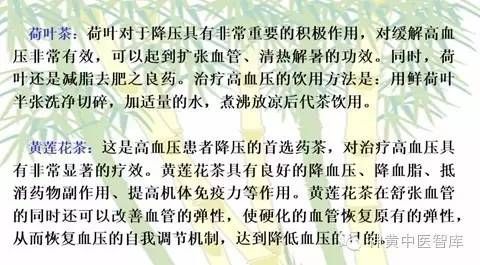 荷叶茶：荷叶对于降压具有非常重要的积极作用，对缓解高血
压非常有效，可以起到扩张血管、清热解暑的功效。同时，荷
叶还是减脂去肥之良药。治疗高血压的饮用方法是：用鲜荷叶
半张洗净切碎，加适量的水，煮沸放凉后代茶饮用。
黄莲花茶：这是高血压患者降压的首选药茶，对治疗高血压具
有非常显著的疗效。黄莲花茶具有良好的降血压、降血脂、抵
消药物副作用、提高机体免疫力等作用。黄莲花茶在舒张血管
的同时还可以改善血管的弹性，使硬化的血管恢复原有的弹性，
从而恢复血压的自我调节机制，达到降低血压的目的。
黄中医智库